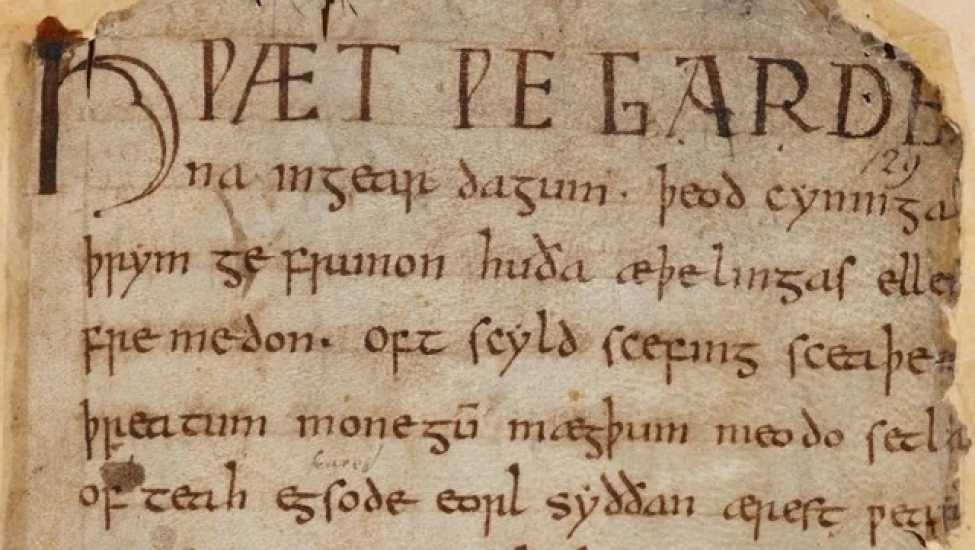 HǷÆT ǷE GARDE
na ingear dagum. þeod cyninga
þrym ge frunon huða æþelingas elle
fremedon. oft scyld scefing sceaþe
þreatum monegū mægþum meodo setla
of teah egsode eorl syððan ærest ƿear
129